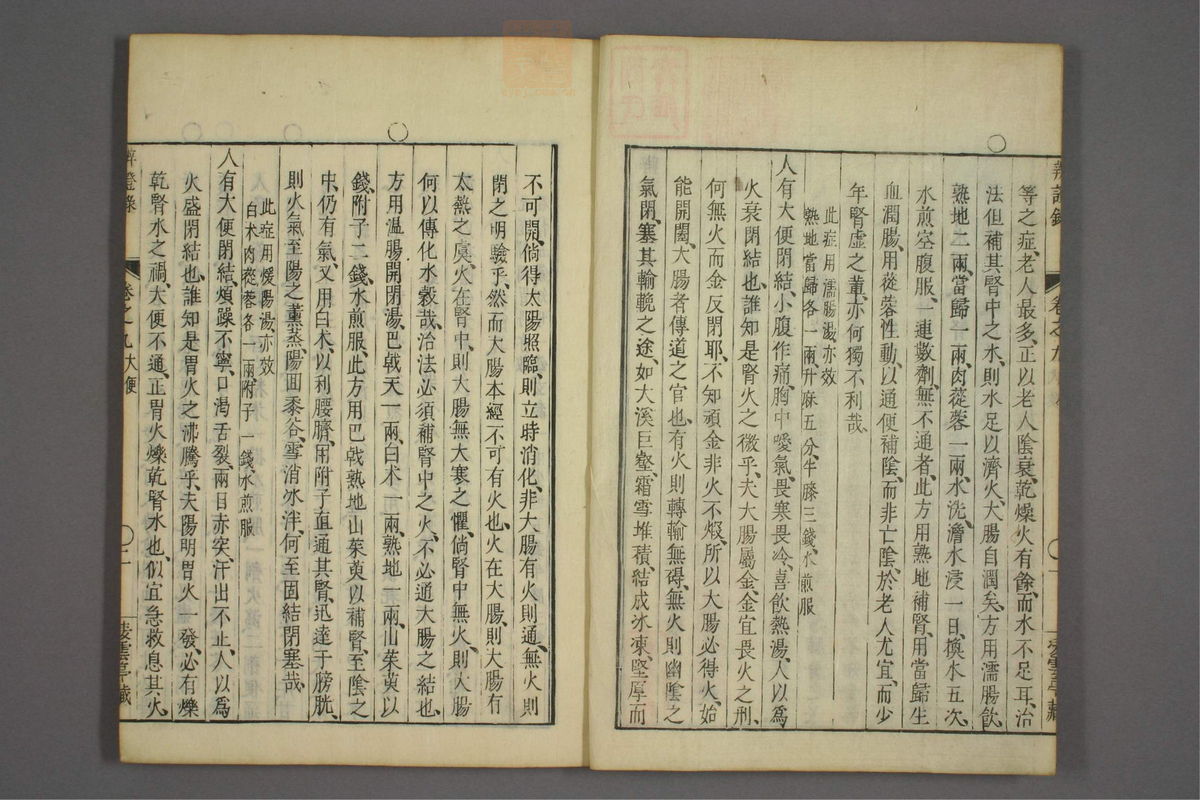 等之症、老人最多、正以老人陰衰、乾燥火有餘、而水不足耳、治
法但補其腎中之水、則水足以濟火、大腸自潤矣、方用濡腸飲
熟地二兩、當歸一兩、肉蓯蓉一兩、水洗、澹水浸一日、換水五次、
水煎空腹服、一連數劑、無不通者、此方用熟地補腎、用當歸生
血潤腸、用蓯蓉性動、以通便補陰、而非亡陰、於老人尤宜、而少
年腎虛之輩、亦何獨不利哉、
此症用濡腸湯亦效
熟地當歸各一兩、升麻五分、牛膝三錢、水煎服
人有大便閉結、小腹作痛、胸中噯氣、畏寒畏冷、喜飲熱湯、人以為
火衰閉結也、誰知是腎火之微乎、夫大腸屬金、金宜畏火之刑、
何無火而金反閉耶、不知頑金非火不煅、所以大腸必得火、始
能開闔、大腸者傳道之官也、有火則轉輸無碍、無火則幽陰之
氣閉、塞其輸輓之途、如大溪巨壑、霜雪堆積、結成氷凍、堅厚而
不可開、倘得太陽照臨、則立時消化、非大腸有火則通、無火則
閉之明驗乎、然而大腸本經、不可有火也、火在大腸、則大腸有
太熱之虞、火在腎中、則大腸無大寒之懼、倘腎中無火、則大腸
何以傳化水穀哉、治法必須補腎中之火、不必通大腸之結也、
方用温腸開閉湯、巴戟天一兩、白术一兩、熟地一兩、山茱萸五
錢、附子二錢、水煎服、此方用巴戟熟地山茱萸以補腎、至陰之
中、仍有氣、又用白术、以利腰臍、用附子直通其腎、迅達于膀胱、
則火氣至陽之薰蒸、陽囬黍谷、雪消冰泮、何至固結閉塞哉、
此症用煖陽湯、亦效
白术肉蓯蓉各一兩附子一錢、水煎服
人有大便閉結、煩躁不寧、口渴舌裂、兩目赤突、汗出不止、人以為
火盛閉結也、誰知是胃火之沸騰乎、夫陽明胃火一發、必有爍
乾腎水之禍、大便不通、正胃火爍乾腎水也、似宜急救息其火、
卷之九大便
二